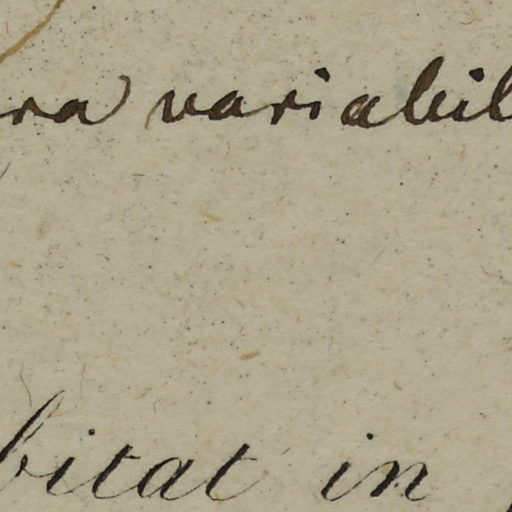 ra variabil
bitat in